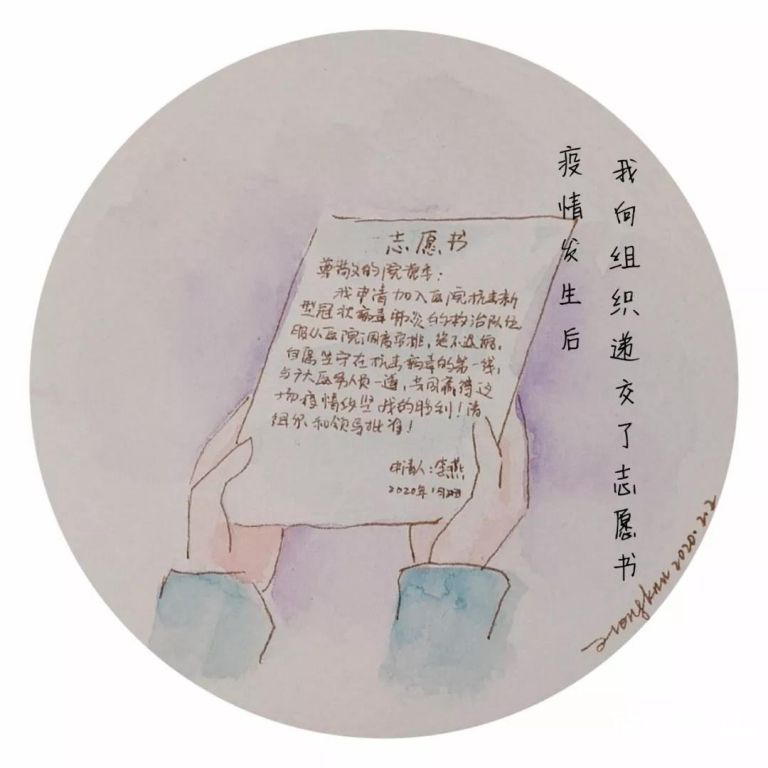 疫情发生后
我向组织递交了志愿书
志愿书
尊敬的院党委：
我申请加入医院抗击新
型冠状病毒肺炎的救治队伍
服从医院调度安排，绝不退缩，
自愿坚守在抗击病毒的第一线，
与广大医务人员一道，共同赢得这
场疫情攻坚战的胜利！请
组织和领导批准！
申请人：李燕
2020年1月
2020.2.2